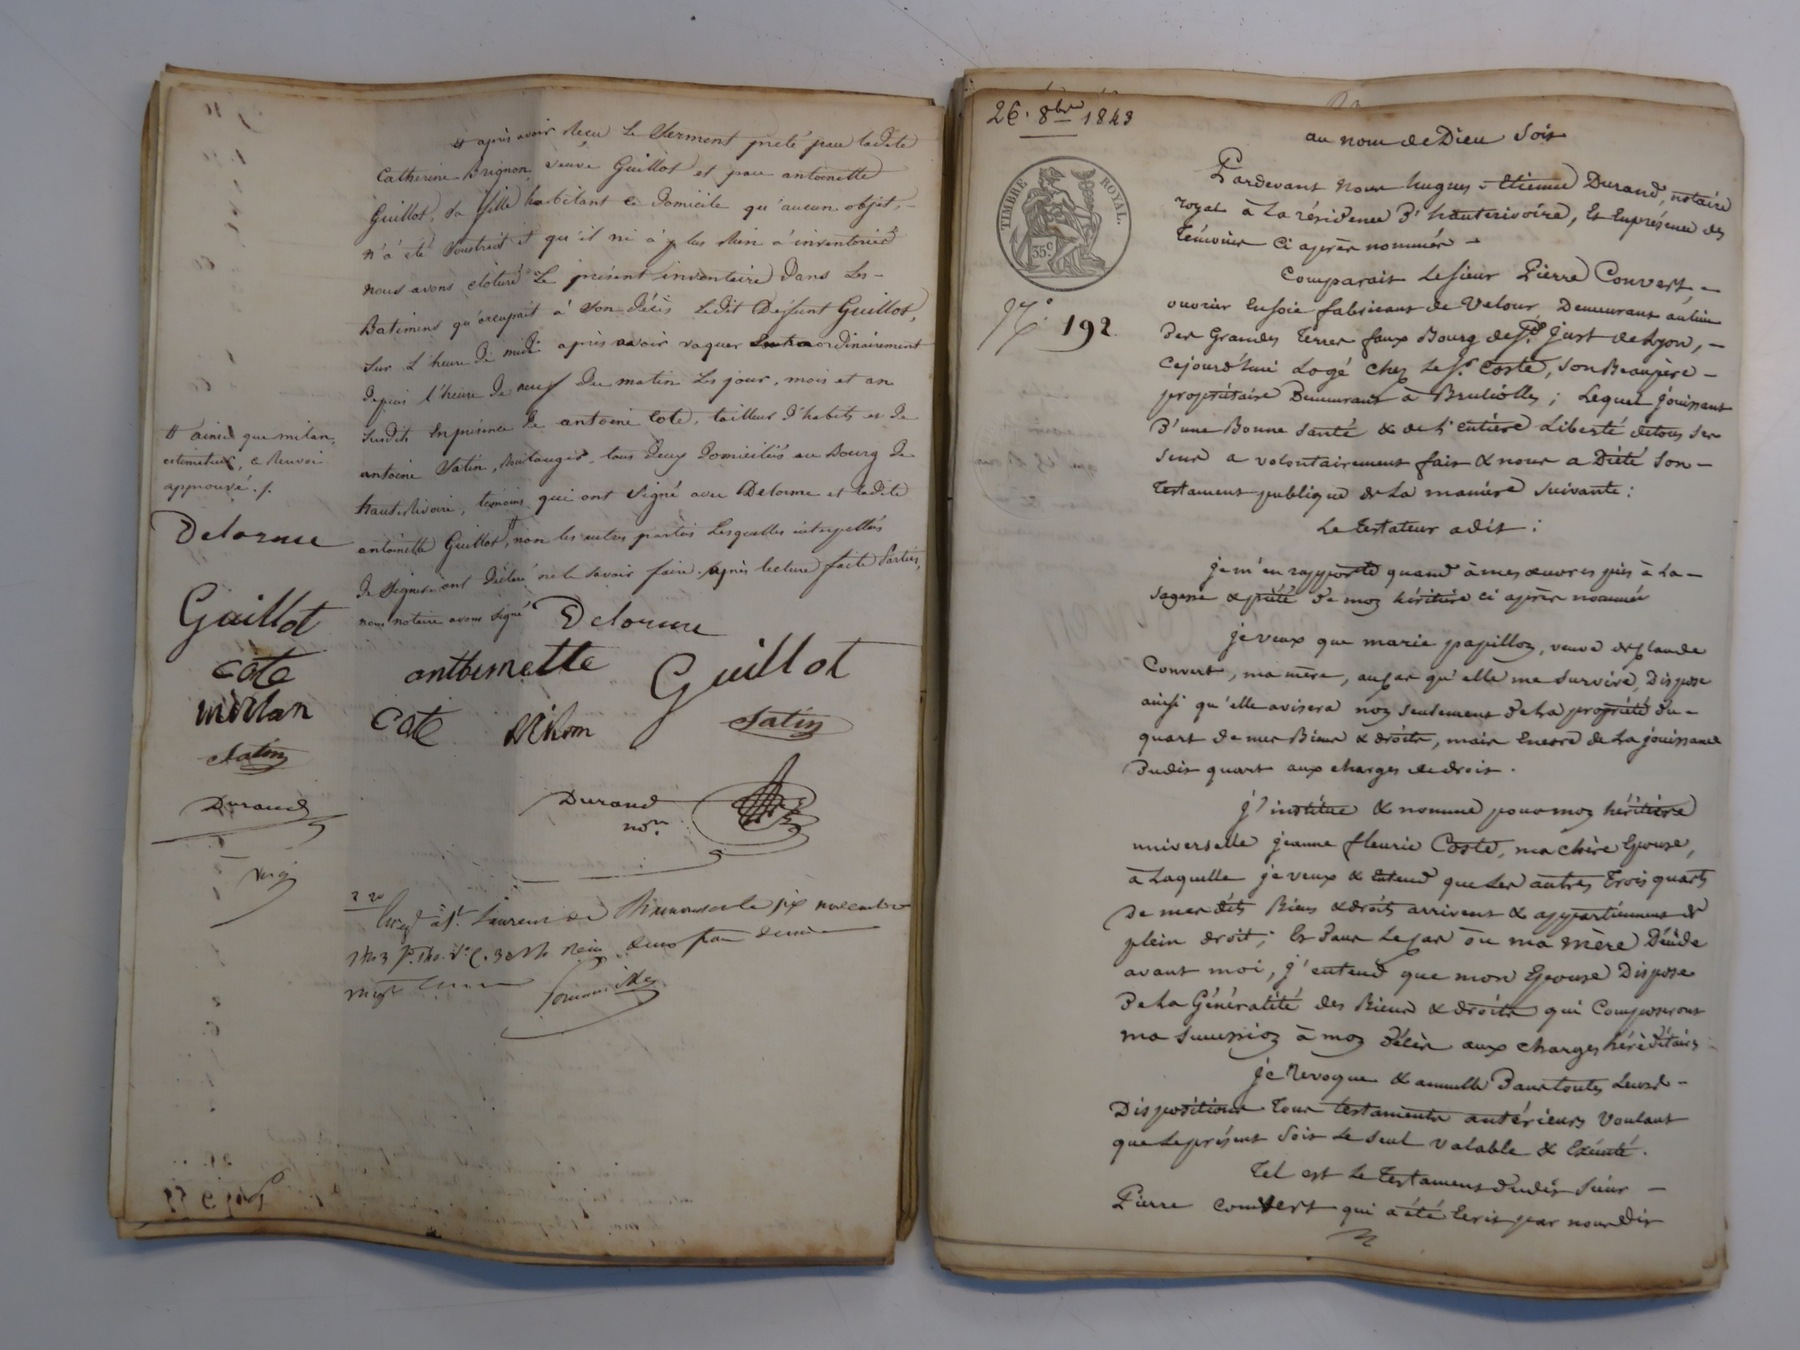 et après avoir Recu Le Serment prêté par ladite
Catherine Brignon, veuve Guillot et par antoinette
Guillot, sa fille habitant ce Domicile qu'aucun objet,-
n'à été soustrait et qu'il ni à plus Rien à inventorier
nous avons clôturé Le présent inventaire Dans Les-
Batimens qu'occupait à Son Décès Ledit Défunt Guillot,
Sur L'heure de midi après avoir vaquer
Depuis l'heure De neuf Du matin Les jour, mois et an
Susdits Enprésence De antoine Cote, tailleur D'habits et De
antoine Satin, Boulanger, tous Deux Domiciliés au Bourg De
hauteRivoire, témoins qui ont Signé avec Delorme et ladite
antoinette Guillot, non les autres parties Lesquelles interpellées
De Signer ont Déclaré ne le Savoir faire. Après lecture faite Parties,
nous notaire avons Signé
# ainsi que milan,
estimateur, ce Renvoi
approuvé ./.
Delorme
Guillot
Cote
milan
Satin
Durand
Delorme
anthoinette Guillot
Cote Milom Satin
Durand
nore
à St. Laurent de Chamousset le six novembre
26. 8bre 1843
TIMBRE ROYAL.
35.c
No. 192.
au nom de Dieu Soit
Pardevant Nous hugues-étienne Durand, notaire
royal à La résidence D'hauterivoire, & Enprésence des
témoins ci après nommés -
Comparait Le Sieur Pierre Convert -
ouvrier En Soie fabricant de Velour, Demeurant au lieu
Des Grandes terres faux Bourg de St. Just de Lyon, -
Cejourd'hui Logé Chez Le Sr. Coste, Son Beaupère -
propriétaire Demeurant à Brulliolles; Lequel jouissant
D'une Bonne Santé & de l'entière Liberté detous Ses
Sens a volontairement fait & nous a Dicté Son -
testament publique de La manière Suivante:
Le testateur a dit:
je m'en rapporte quand à mes œuvres pies à La -
Sagesse & piété de mon héritière ci après nommée
je veux que marie papillon, veuve de Claude
Convert, ma mère, au Cas qu'elle me Survive, Dispose
ainsi qu'elle avisera non Seulement de La propriété du -
quart de mes Biens & droits, mais Encore de La jouissance
Dudit quart aux charges de droit.
j'institue & nomme pour mon héritière
universelle jeanne fleurie Coste, ma chère Epouse,
à Laquelle je veux & Entend que Les autres trois quarts
De mes dits Biens & droits arrivent & appartiennent de
plein droit; Et Dans Le Cas où ma mère Décède
avant moi, j'entend que mon Epouse Dispose
De La Généralité des Biens & droits qui Composeront
ma Succession à mon Décès aux charges héréditaires
je Revoque & annulle Dans toutes Leurs -
Dispositions tous testaments antérieurs Voulant
que Le présent Soit Le Seul Valable & Exécuté.
Tel est Le testament dudit Sieur -
Pierre Convert qui a été Ecrit par nous Dit